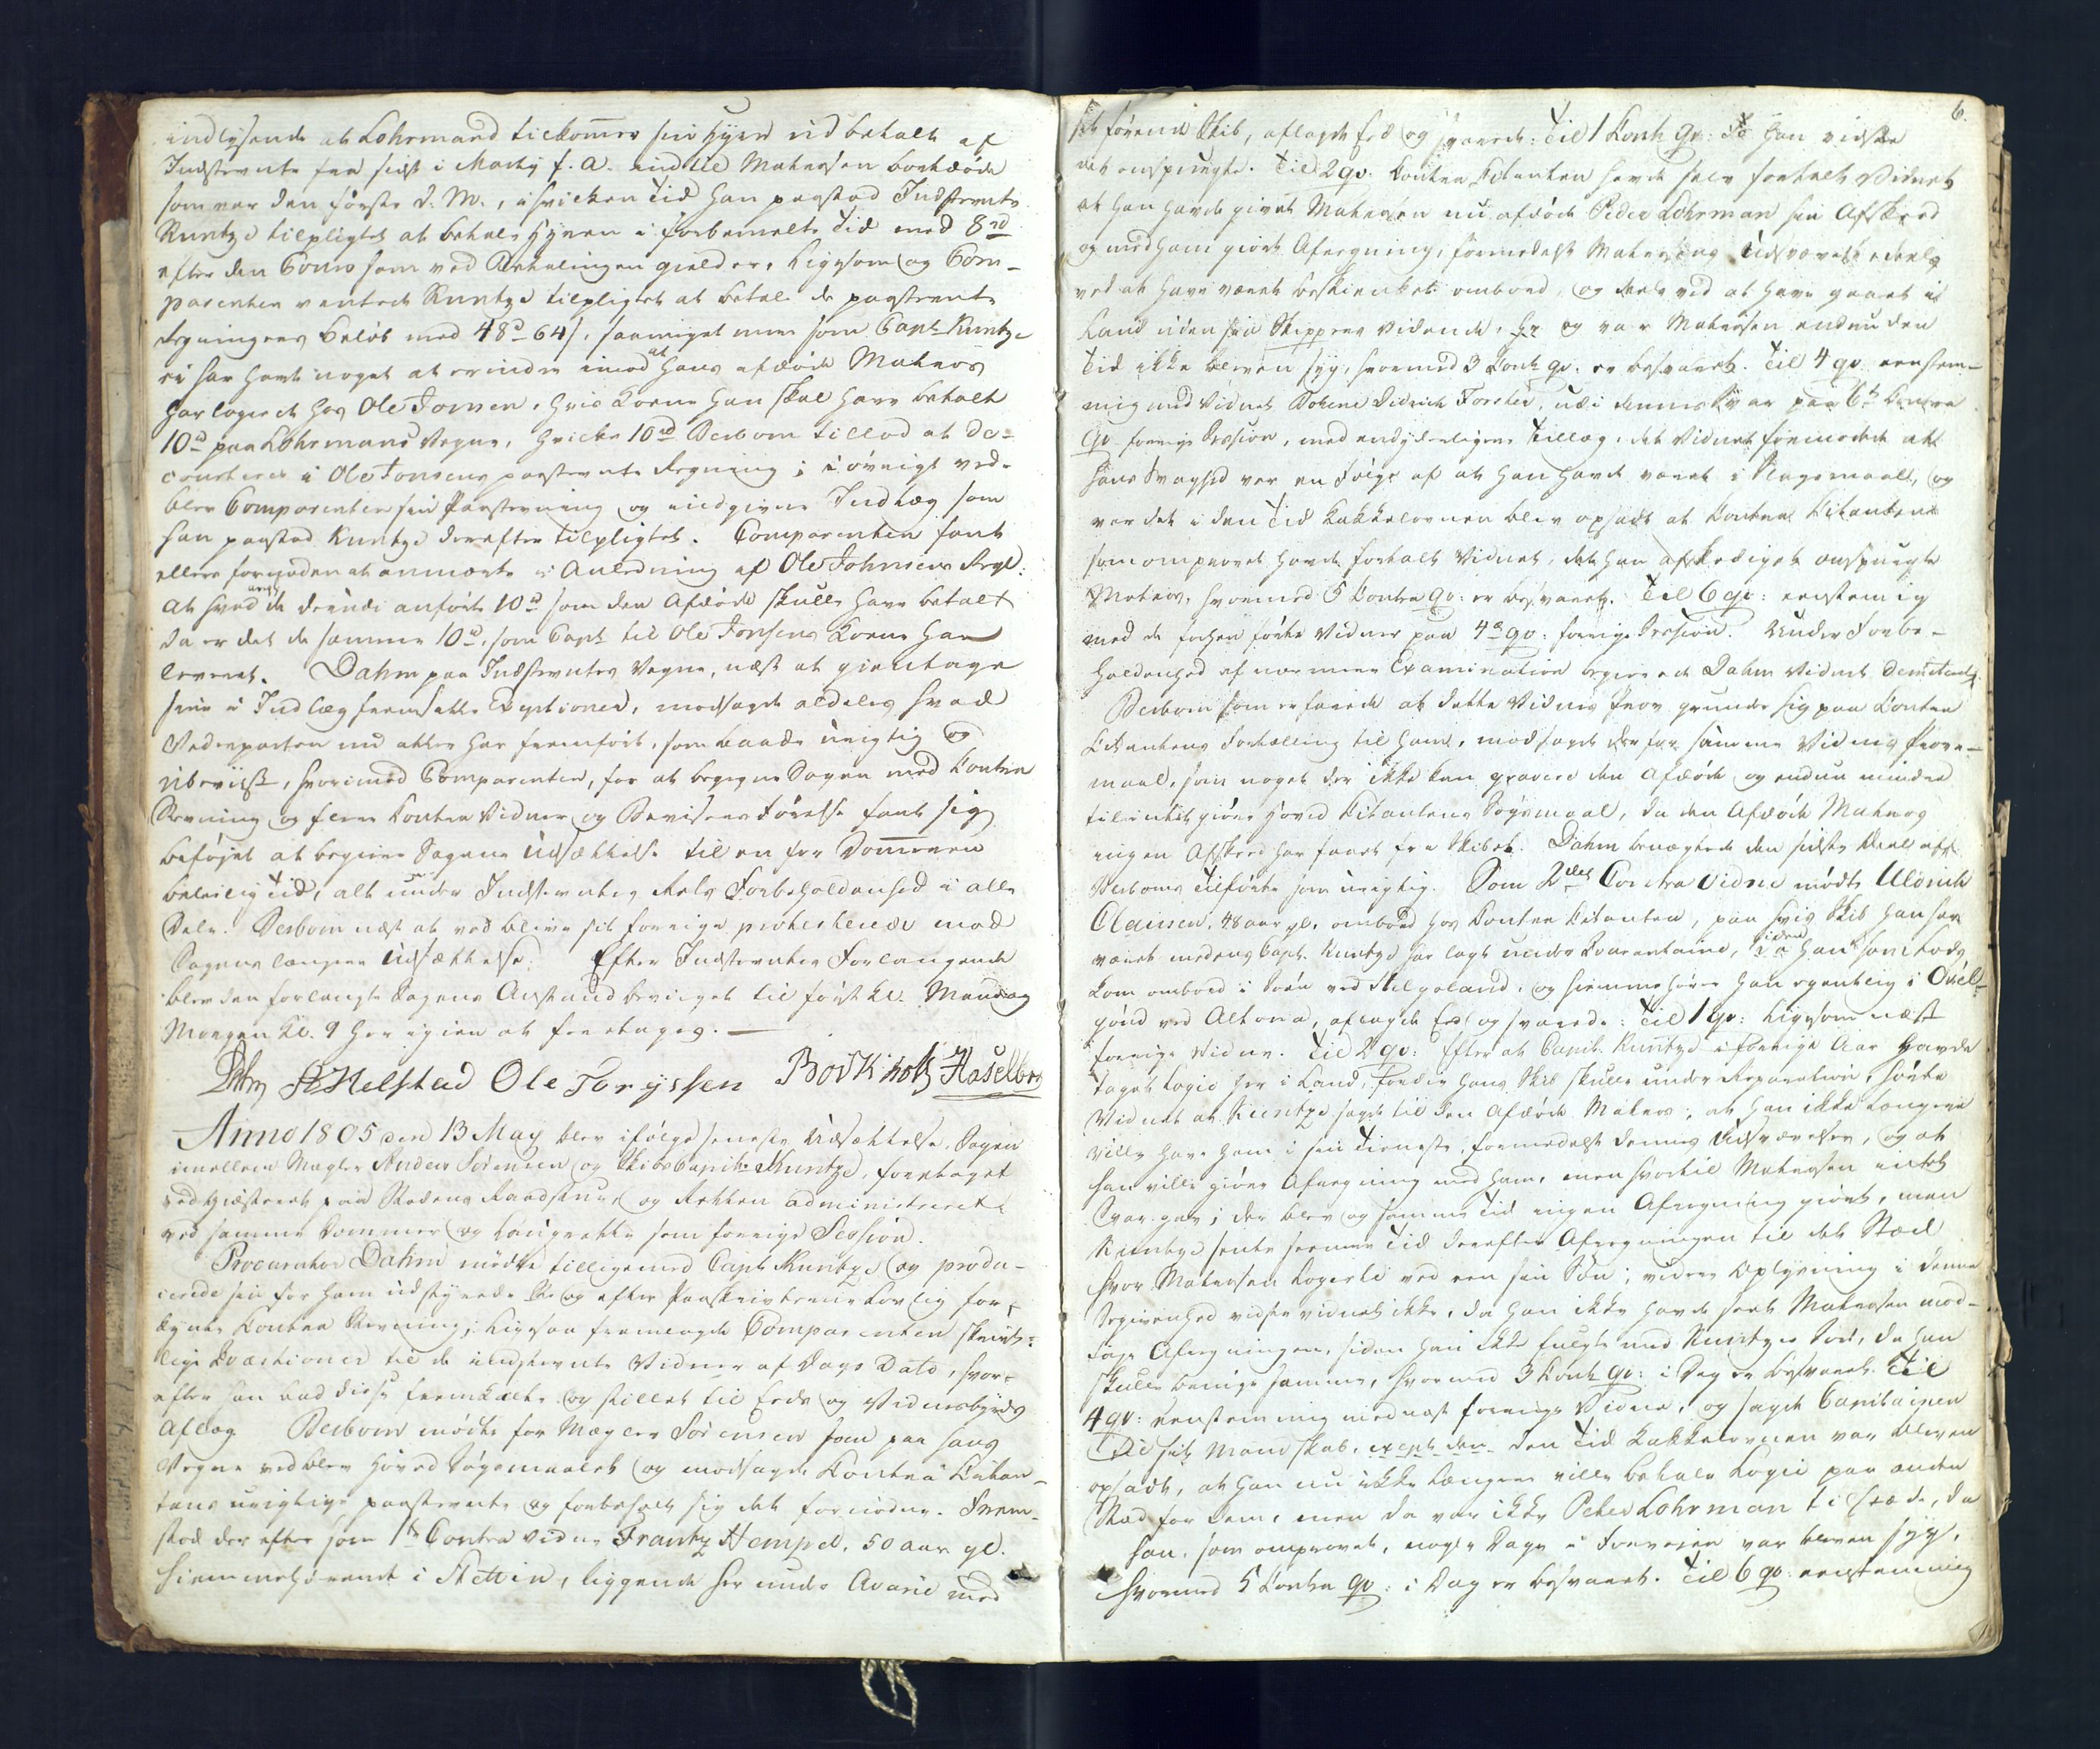 indlysende at Lohrmand tilkommer sin Hyre udbetalt af
Indstevnte fra sidst i Martii f. A. indtil Matrosen bortdøde
som var den første d. M., i hvilken Tid han paastod Indstevnte
Kuntze tilpligtet at betale Hyren i forbemelte Tid med 8 rd
efter den Cours som ved Betalingen gielder. Ligesom og Com-
parenten ventede Kuntze tilpligtet at betale de paastevnte
Regningers Beløb med 48 rd 64 s, saameget mere som Capt. Kuntze
ei har havt noget at erindre imod at hans afdøde Matros
har logeret hos Ole Jonsen, hvis Kone han skal have betalt
10 rd paa Lohrmans Vegne, hvilke 10 rd Desborn tillod at de-
courteres i Ole Jonsens paastevnte Regning; i øvrigt ved-
blev Comparenten sin Paastevning og indgivne Indlæg som
han paastod Kuntze derefter tilpligtet. Comparenten fant
ellers fornøden at anmærke i Anledning af Ole Johnsens Regl:
At hvad de derudi anførte 10 rd som den Afdøde skulle have betalt
da er det de samme 10 rd, som Capt. til Ole Jonsens Kone har
leveret. Dahm paa Indstevntes Vegne, næst at gientage
sine i Indlæg fremsatte Exeptioner, modsagde aldeles hvad
Vederparten nu atter har fremført, som baade urigtig og
ubeviist, hvorimod Comparenten, for at begegne Sagen med Contra
Stevning og flere Contra Vidner og Bevisers Førelse fant sig
beføjet at begiere Sagens Udsættelse til en for Dommeren
beleilig Tid, alt under Indstevntes Rets Forbeholdenhed i alle
Dele. Desborn næst at vedblive sit forrige protesterede mod
Sagens længere Udsættelse. Efter Indstevntes Forlangende
blev den forlangte Sagens Anstand bevilget til førstk. Mandag
Morgen Kl. 9 her igien at foretages. —
Dahm Helstad Ole Torgssen Borkholtz Haselberg
Anno 1805 den 13 May blev ifølge seneste Udsættelse, Sagen
imellem Mægler Anders Sørensen og Skibscapit. Kuntze, foretaget
ved Giesteret paa Stadens Raadstue og Retten administreret
ved samme Dommer og Laugrette som forrige Session.
Procurator Dahm mødte tilligemed Capt. Kuntze og produ-
cerede sin for ham udstyrede og efter Paaskrivterne lovlig for-
kyndte Contra Stevning; ligesaa fremlagde Comparenten skrivt-
lige Qvæstioner til de indstevnte Vidner af Dags Dato, hvor-
efter han bad disse fremkaldte og stillet til Eeds og Vidnesbyrds
Aflæg. Desborn mødte for Mægler Sørensen som paa hans
Vegne vedblev Hoved Søgemaalet og modsagde Contra Citan-
tens urigtige paastevnte og forbeholt sig det fornødne. Frem-
stod der efter som 1te Contra Vidne Frantz Hempel, 50 aar gl.
hiemmehørende i Stettin, liggende her under Avarie med
6.
sit førende Skib, aflagde Eed og svarede: Til 1 Contr. Qv: Ja han vidste
det omspurgte. Til 2 qv: Contra Citanten havde selv fortalt Vidnet
at han havde givet Matrosen nu afdøde Peder Lohrman sin Afskeed
og med ham giort Afregning, formedelst Matrosens Udsvævelse deels
ved at have været beskienket ombord, og deels ved at have gaaet i
Land uden sin Skippers Vidende, og var Matrosen endnu den
Tid ikke bleven syg, hvormed 3 Contr. qv. er besvaret. Til 4 qv. eenstem-
mig med Vidnet Didrich Forster, udi dennes Svar paa 6te Contra
Qv. forrige Session, med endyderligere Tillæg, det Vidnet formodede at
hans Svaghed var en Følge af at han havde været i Slagsmaal, og
var det i den Tid Kakkelovnen blev opsadt at Contra Citanten
som ommeldt havde fortalt Vidnet, det han afskediget omspurgte
Matros, hvormed 5 Contra Qv: er besvaret. Til 6 qv: eenstemig
med de forhen førte Vidner paa 4de qv: forrige Session. Under Forbe-
holdenhed af nærmere Examination begierede Dahm Vidnet demiteret.
Desborn som erfarede at dette Vidnes Prov grunder sig paa Contra
Citantens Fortælling til ham, modsagde derfor samme Vidnes Prove-
maal, som noget der ikke kan gravere den Afdøde og endnu mindre
tilintetgiøre Hoved Citantens Søgsmaal, da den Afdøde Matros
ingen Afskeed har faaet fra Skibet. Dahm benægtede den sidste Deel af
Desborns Tilførte som urigtig. Som 2det Contra Vidne mødte Ulrich
Claussen, 48 aar gl. ombord hos Contra Citanten, paa hvis Skib han har
været medens Capt. Kuntze har lagt under Quarantaine, siden han som Lods
kom ombord i Søen ved Helgoland, og hiemmehører han egentlig i Ovel-
gönd ved Altona, aflagde Eed og svarede: Til 1 qv: ligesom næst
forrige Vidne. Til 2 qv: Efter at Capit. Kuntze i forrige Aar havde
taget Logie her i Land, fordi hans Skib skulle under Reparation, hørte
Vidnet at Kuntze sagde til den afdøde Matros, at han ikke længere
ville have ham i sin Tieneste, formedelst dennes Udsvævelser, og at
han ville giøre Afregning med ham, men hvortil Matrosen intet
Svar gav; der blev og samme Tid ingen Afregning giort, men
Kuntze sente senere Tid derefter Afregningen til det Sted
hvor Matrosen logerte ved een sin Søn; videre Oplysning i denne
Begivenhed vidste Vidnet ikke, da han ikke havde seet Matrosen mod-
tage Afregningen, siden han ikke fulgte med Kuntzes Søn, da han
skulle bringe samme, hvormed 3 Contr. Qv: i Dag er besvaret. Til
4 qv: eenstemmig med næst forrige Vidne, og sagde Capitainen
til sit Mandskab, den Tid Kakkelovnen var bleven
opsadt, at han nu ikke længere ville betale Logie paa andet
Sted for dem, men da var ikke Peter Lohrman tilstæde, da
han, som omprovet, nogle Dage i Forveien var bleven syg,
hvormed 5 Contra Qv: i Dag er besvaret. Til 6 qv: eenstemmig